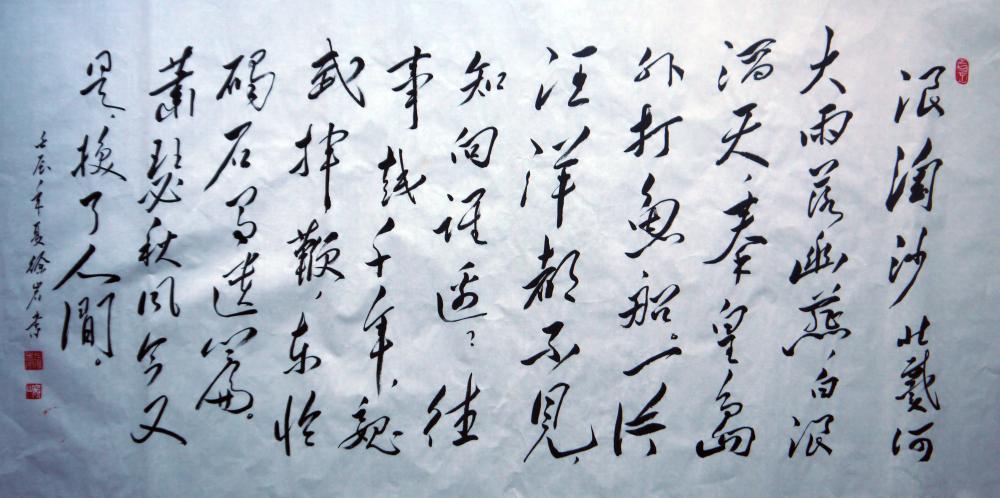 浪淘沙 北戴河
大雨落幽燕,白浪
滔天,秦皇岛
外打鱼船。一片
汪洋都不见,
知向谁边?往
事越千年,魏
武挥鞭,东临
碣石有遗篇。
萧瑟秋风今又
是,换了人间。
壬辰年夏徐岩书